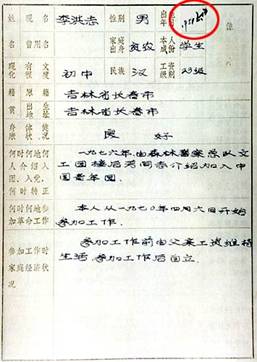 姓 现名 李洪志 性别 男 出生年月
名 曾用名 家庭出身 贫农 本人成份 学生
现有文化程度 初中 民族 汉 工资级别 23级
籍贯 吉林省长春市
出生地址 吉林省长春市
身体健康状况 良好
何时何地何人介绍入团、入党，何时转正
一九七六年由森林警察总队文工团 同志介绍加入中国青年团。
何时何地参加革命工作
本人从一九七〇年四月六日开始参加工作。
参加工作时家庭经济状况
参加工作前由父亲工资维持生活，参加工作后自立。